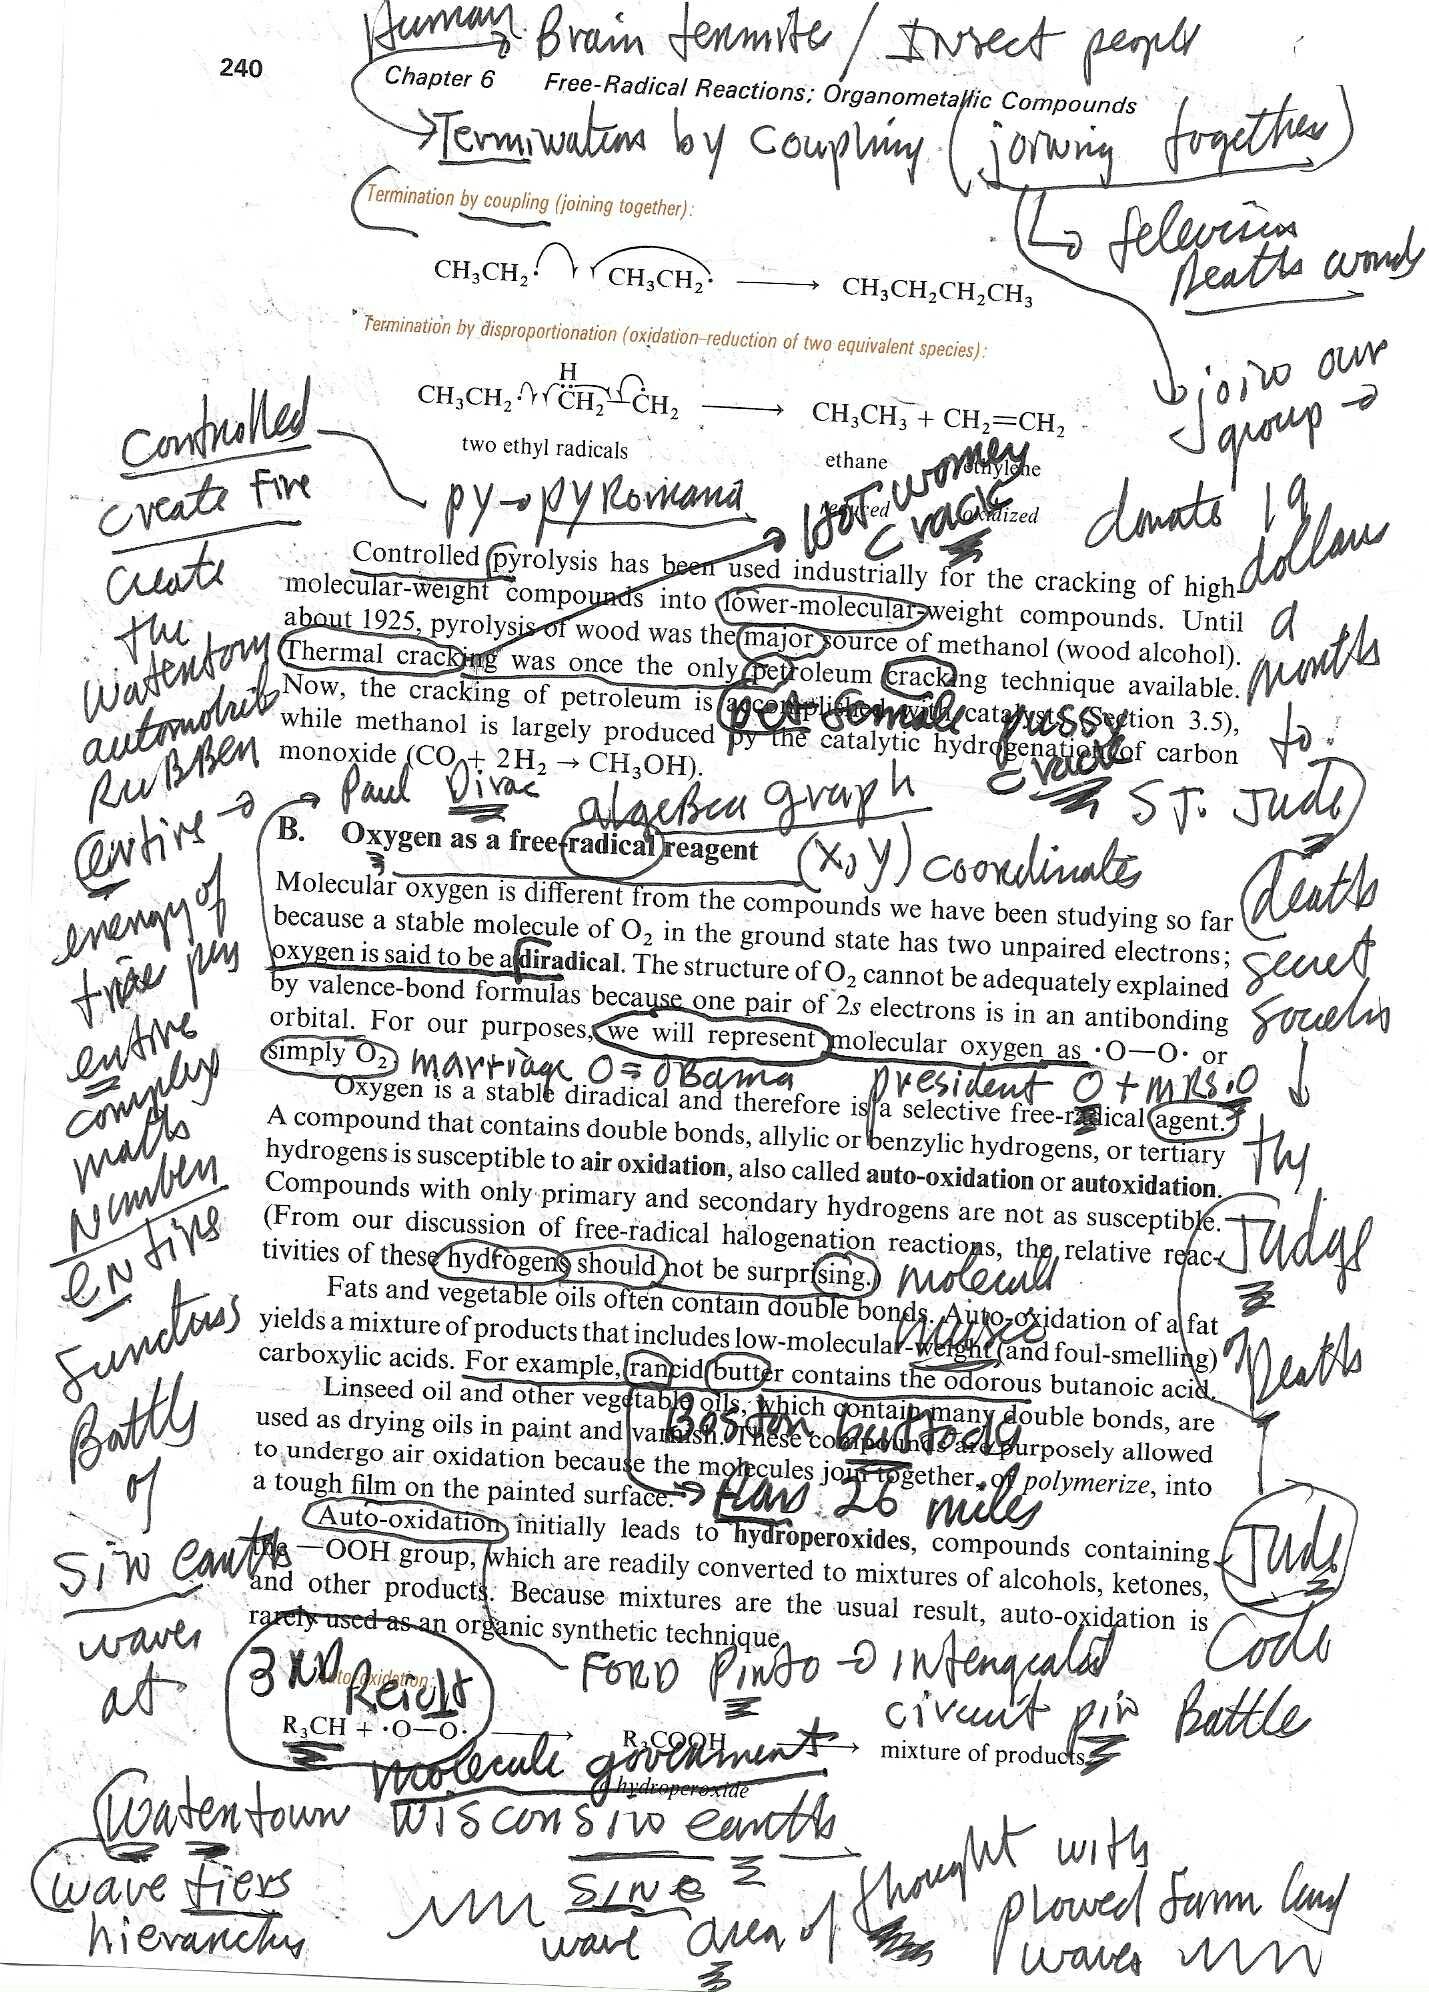 Human → Brain termite / Insect people
240
Chapter 6 Free-Radical Reactions; Organometallic Compounds
Termination by Coupling (joining together)
Termination by coupling (joining together):
CH₃CH₂· CH₃CH₂· ⟶ CH₃CH₂CH₂CH₃
Television
Deaths words
Termination by disproportionation (oxidation–reduction of two equivalent species):
H
CH₃CH₂· CH₂—CH₂ ⟶ CH₃CH₃ + CH₂=CH₂
two ethyl radicals ethane ethylene
reduced oxidized
join our
group →
donate 19
dollars
a
months
to
ST. Jude
deaths
secret
the
Judge
of
Deaths
Jude
Code
Battle
Controlled
create Fire
create
the
Watertown
automobile
RuBBer
entire →
energy of
tire per
entire
complex
math
Number
ENtire
functions
of
Battle
of
Sin earths
waves
at
py → pyRomana
Hot women
crack
Controlled pyrolysis has been used industrially for the cracking of high-
molecular-weight compounds into lower-molecular-weight compounds. Until
about 1925, pyrolysis of wood was the major source of methanol (wood alcohol).
Thermal cracking was once the only petroleum cracking technique available.
Now, the cracking of petroleum is accomplished with catalysts (Section 3.5),
pet female pussy
while methanol is largely produced by the catalytic hydrogenation of carbon
crack
monoxide (CO + 2H₂ → CH₃OH).
Paul Dirac algebra graph
B. Oxygen as a free-radical reagent
(x, y) coordinates
Molecular oxygen is different from the compounds we have been studying so far
because a stable molecule of O₂ in the ground state has two unpaired electrons;
oxygen is said to be a diradical. The structure of O₂ cannot be adequately explained
by valence-bond formulas because one pair of 2s electrons is in an antibonding
orbital. For our purposes, we will represent molecular oxygen as ·O—O· or
simply O₂.
marriage O = OBama president O + MRS. O
Oxygen is a stable diradical and therefore is a selective free-radical agent.
A compound that contains double bonds, allylic or benzylic hydrogens, or tertiary
hydrogens is susceptible to air oxidation, also called auto-oxidation or autoxidation.
Compounds with only primary and secondary hydrogens are not as susceptible.
(From our discussion of free-radical halogenation reactions, the relative reac-
tivities of these hydrogens should not be surprising.)
molecule
Fats and vegetable oils often contain double bonds. Auto-oxidation of a fat
music
yields a mixture of products that includes low-molecular-weight (and foul-smelling)
carboxylic acids. For example, rancid butter contains the odorous butanoic acid.
Linseed oil and other vegetable oils, which contain many double bonds, are
Boston buttocks
used as drying oils in paint and varnish. These compounds are purposely allowed
to undergo air oxidation because the molecules join together, or polymerize, into
a tough film on the painted surface.
→ Ran 26 miles
Auto-oxidation initially leads to hydroperoxides, compounds containing
the —OOH group, which are readily converted to mixtures of alcohols, ketones,
and other products. Because mixtures are the usual result, auto-oxidation is
rarely used as an organic synthetic technique.
FORD Pinto → integrated
circuit pin
Auto-oxidation:
3 RD Reich
R₃CH + ·O—O· ⟶ R₃COOH ⟶ mixture of products
a hydroperoxide
molecule government
Watertown WisconSin earths
wave tiers
hierarchy
Sine
wave area of thought with
plowed farm land
waves